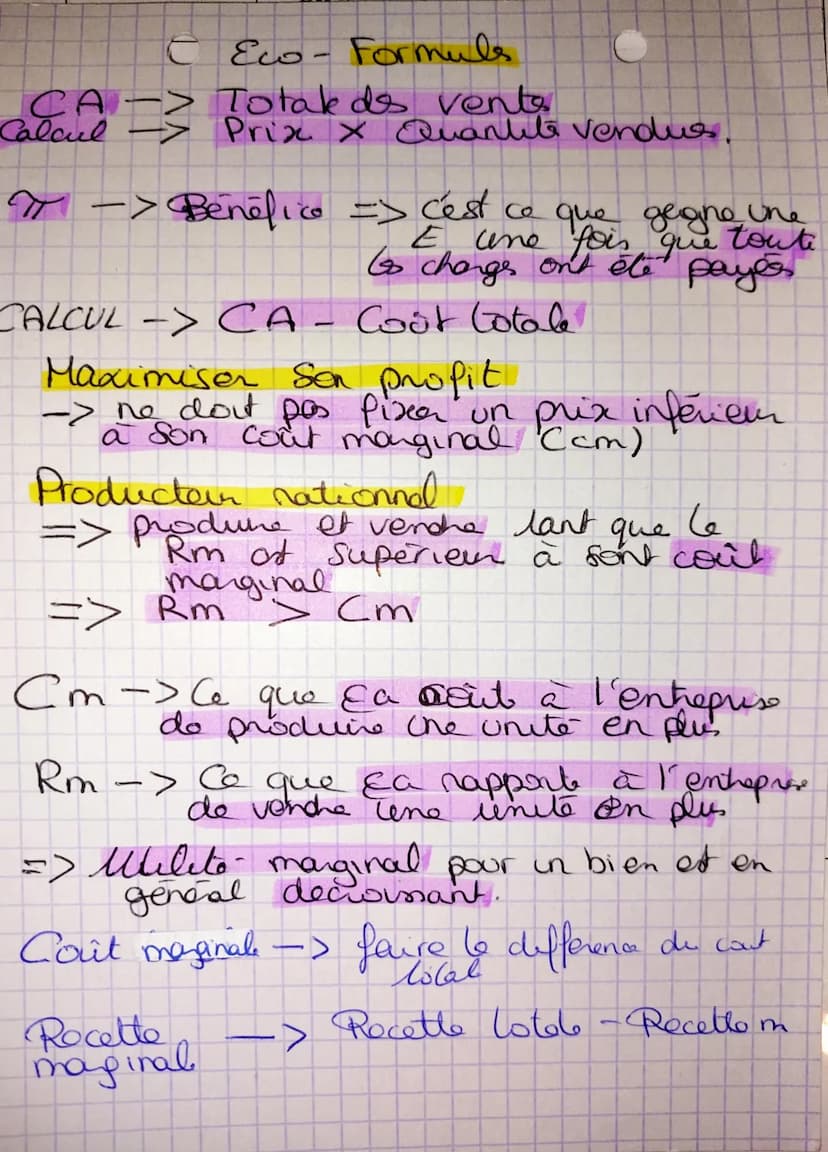 Eco - Formuls
CA -> Totale des vente
Calcul -> Prix x Quantité vendues.
π -> Bénéfice => c'est ce que gegne une
E une fois que toute
les charges ont été payés
CALCUL -> CA - Coût totale
Maximiser son profit
-> ne doit pas fixer un prix inférieur
à son coût marginal (cm)
Producteur rationnel
=> produire et vendre tant que le
Rm est supérieur à sont coût
marginal
=> Rm > Cm
Cm -> Ce que ça coûte à l'entreprise
de produire une unité en plus
Rm -> Ce que ça rapporte à l'entreprise
de vendre une unité en plus
=> Utilité marginal pour un bien est en
général decroissant.
Coût marginale -> faire le différence du cout
total
Recette -> Recette totale - Recette m
marginal